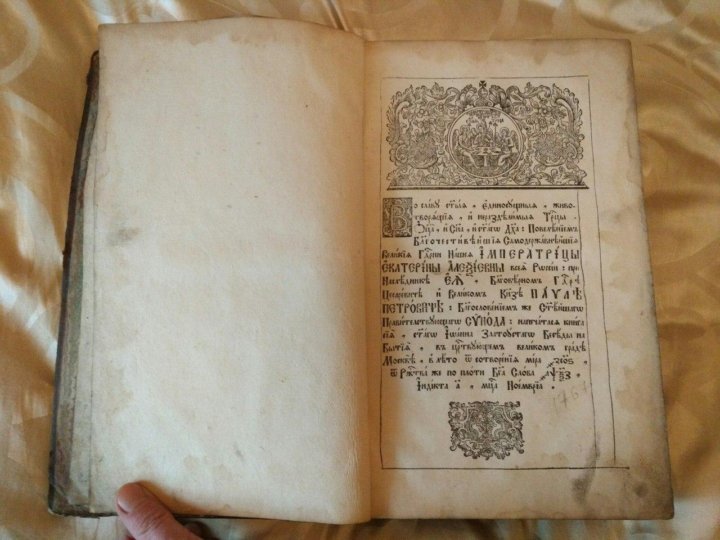 Во славу ст҃ыѧ , є҆диносущныѧ , живо-
творѧщїѧ , и҆ нераздѣлимыѧ Трⷪ҇цы ,
Ѻ҆ц҃а , и҆ Сн҃а , и҆ ст҃агѡ Дх҃а : Повелѣнїемъ
Бл҃гочестивѣйшїѧ Самодержавнѣйшїѧ
Великїѧ Гдⷭ҇рни Нашеѧ И҆МПЕРАТРИ́ЦЫ
Є҆КАТЕРИ́НЫ А҆ЛЕѮІ́ЕВНЫ всеѧ Рѡссїи : при
Наслѣдникѣ Є҆Ѧ̀ , Бл҃говѣрномъ Гдⷭ҇рѣ
Цесаревичѣ и҆ Великомъ Кн҃зѣ ПА́ѴЛѢ
ПЕТРО́ВИЧѢ : Бл҃гословенїемъ же Ст҃ѣйшагѡ
Правительствующагѡ СѴНО́ДА : напечатасѧ книга
сїѧ , ст҃агѡ І҆ѡанна Златоустагѡ Бесѣды на
Бытїѧ , въ црⷭ҇твующемъ великомъ градѣ
Москвѣ , в лѣто ѿ сотворенїѧ мїра
ѿ Ржⷭ҇тва же по плоти Бг҃а Слова ҂аѱѯз
І҆ндїкта а҃і , мцⷭ҇а Ноемврїа .
1767